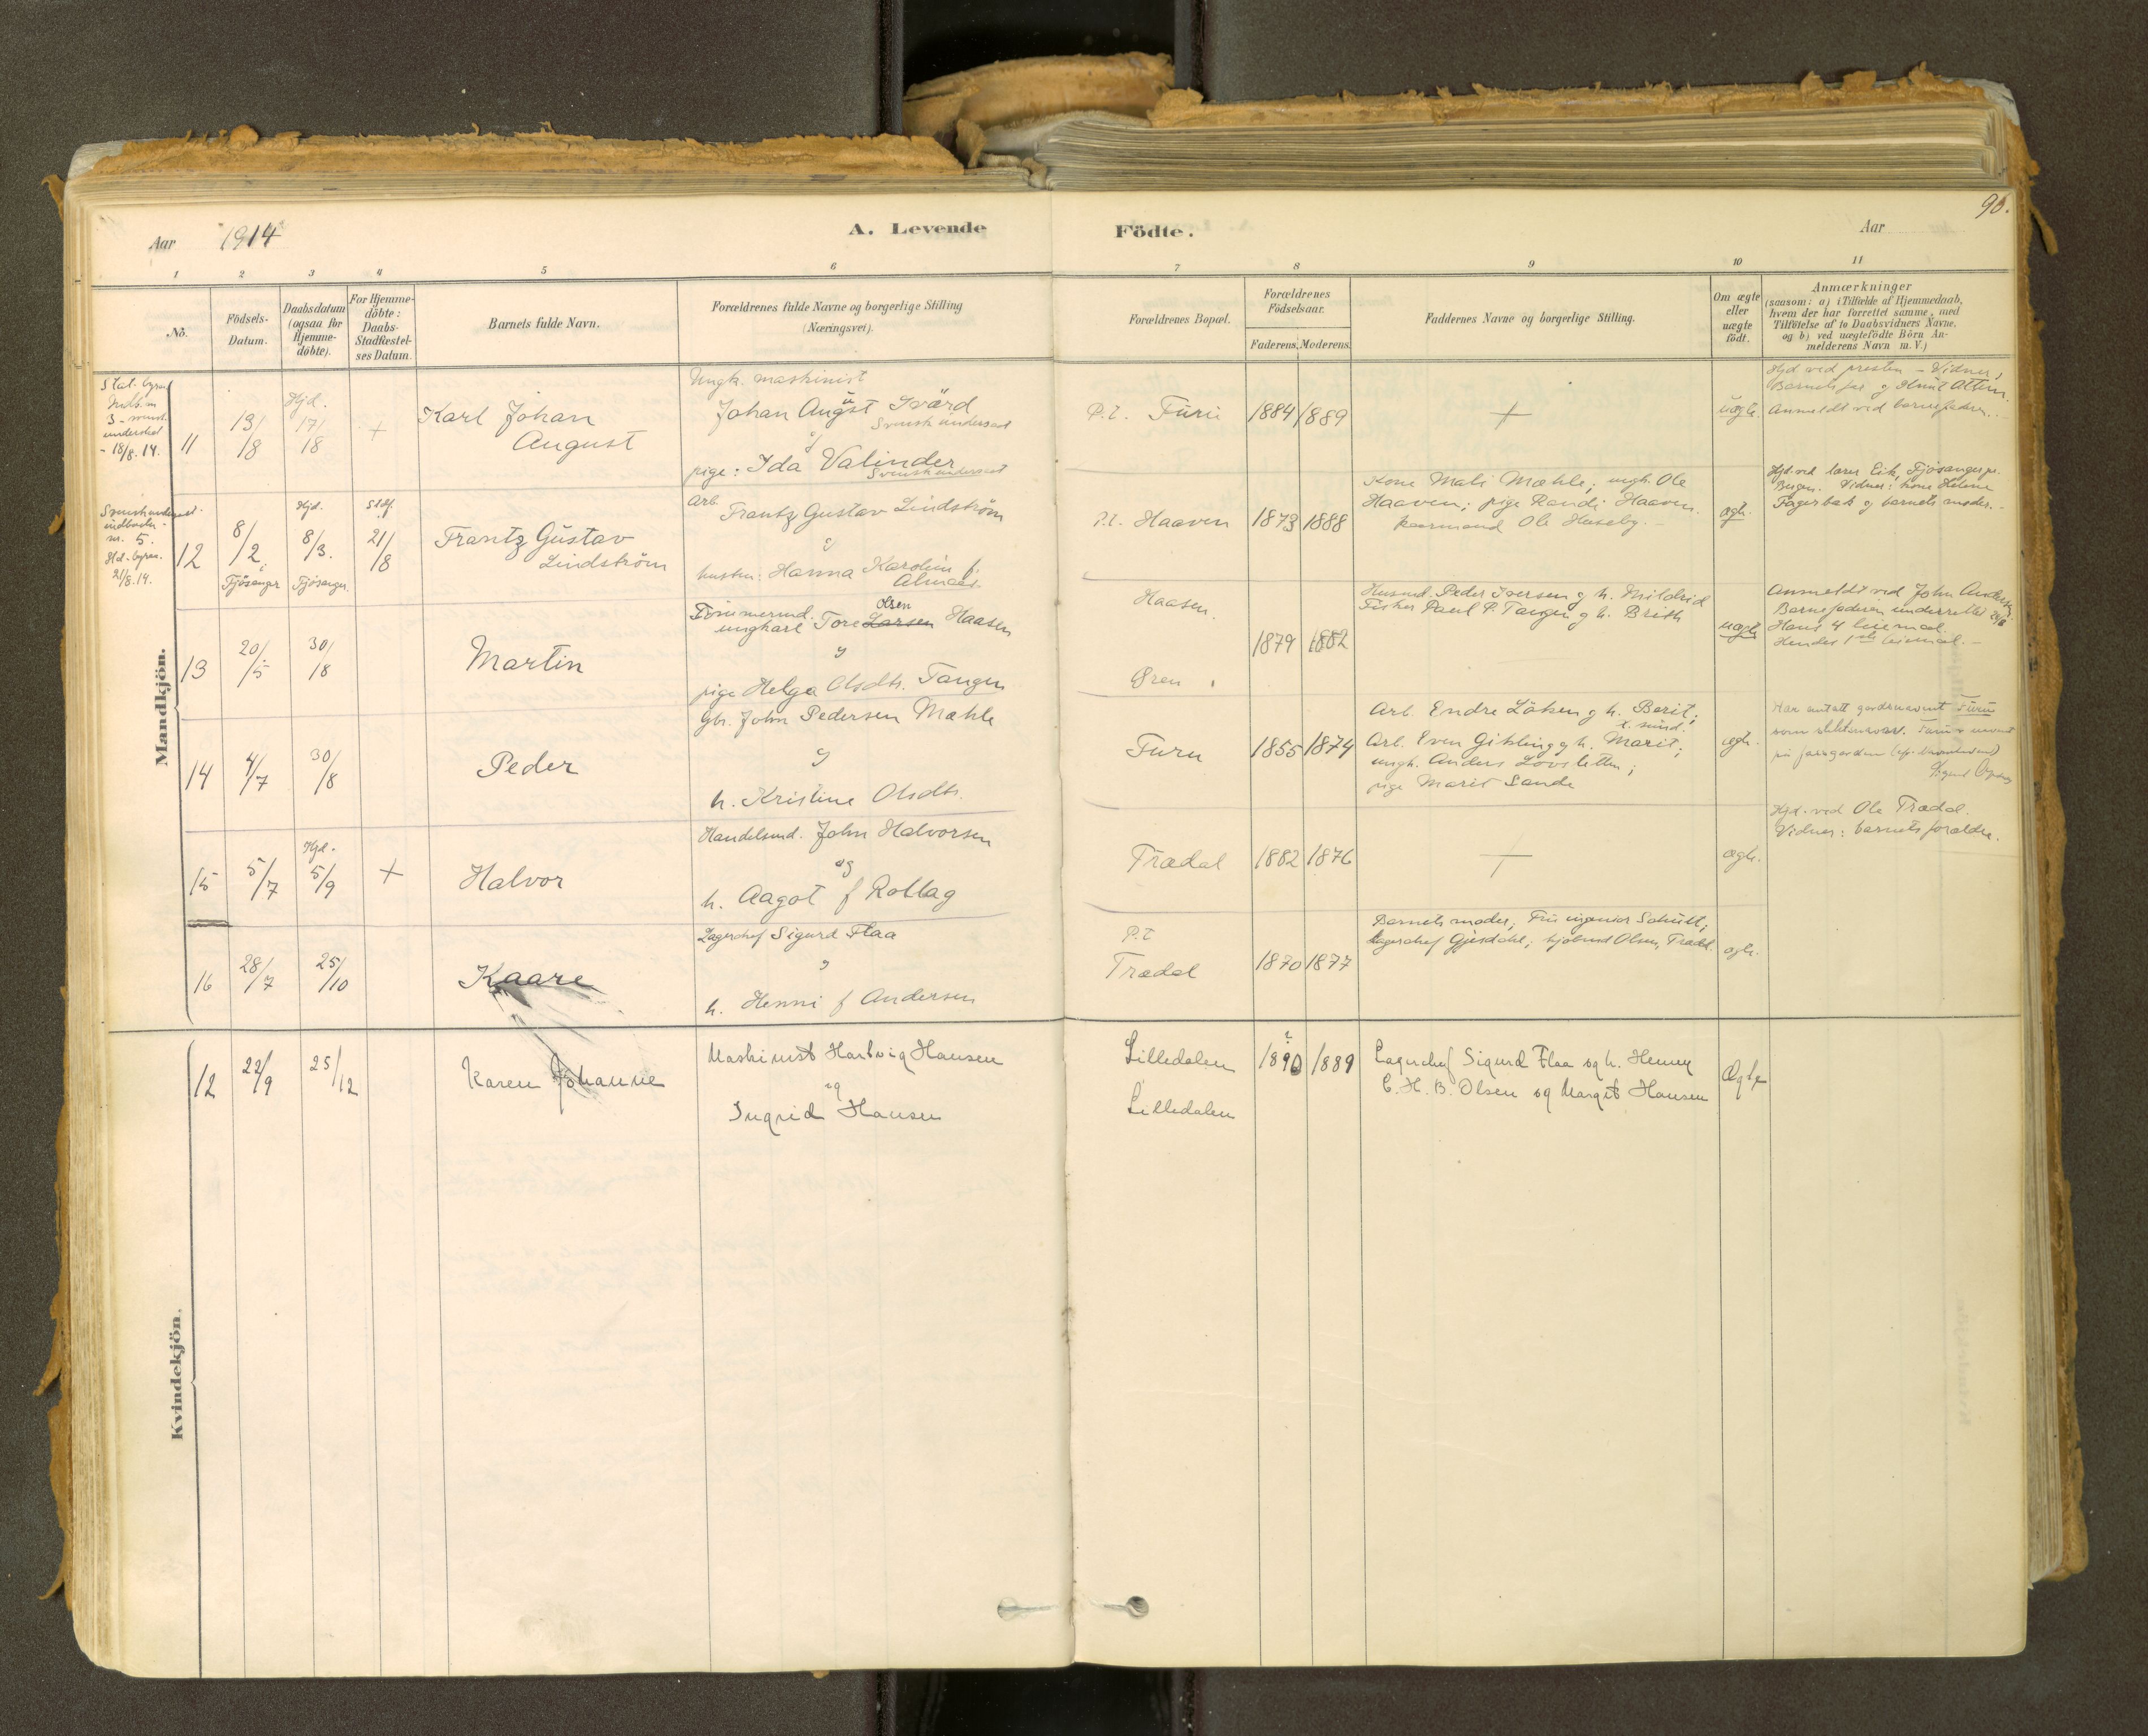 90.
Aar 1914
A. Levende
Födte.
Aar
1 2 3 4 5 6 7 8 9 10 11
No.
Födsels-
Datum.
Daabsdatum
(ogsaa for
Hjemme-
döbte).
For Hjemme-
döbte:
Daabs-
Stadfestel-
ses Datum.
Barnets fulde Navn.
Forældrenes fulde Navne og borgerlige Stilling
(Næringsvei).
Forældrenes Bopæl.
Forældrenes
Födselsaar.
Faderens. Moderens.
Faddernes Navne og borgerlige Stilling.
Om ægte
eller
uægte
födt.
Anmærkninger
(saasom: a) i Tilfælde af Hjemmedaab,
hvem der har forrettet samme, med
Tilföielse af to Daabsvidners Navne.
og b) ved uægtefödte Börn An-
melderens Navn m. V.)
Mandkjön.
Stat. byraa
Indb. nr
3 - svensk
undersaat
- 18/8. 14.
11
13/8
Hjd.
17/18
+
Karl Johan
August
Ungk. maskinist
Johan August Svärd
Svensk undersaat
og
pige: Ida Valinder
Svensk undersaat
P.t. Furu
1884 1889
+
uægte.
Hjd ved presten - Vidner,
Barnets far og Knut
Anmeldt ved barnefaderen.
Svensk undersaat
nr. 5.
Std. byraa.
21/8. 14.
12
8/2
Fjösanger
Hjd.
8/3.
Fjösanger.
Stdf.
21/8
Frantz Gustav
Lindström
Arb.
Frantz Gustav Lindström
og
hustru: Hanna Karolin f.
P.t. Haaven
1873 1888
Kone Mali Mæhle; ungk. Ole
Haaven; pige Randi Haaven.
Ole Huseby.
ægte.
Hjd. ved lærer Eik, Fjösanger pr.
Bergen. Vidner: kone Helene
Fagerbak og barnets moder.
13
20/5
30/18
Martin
Tömmermd.
ungkarl Tore Larsen Olsen Haasen
og
pige Helga Olsdtr. Tangen
Haasen.
Ören
1879 1882
Husmd. Peder Iversen og h. Mildrid
Fisker Paul P. Tangen og h. Brith
uægte
Anmeldt ved John
Barnefaderen underrettet
Hans 4 leiemaal.
Hendes 1ste leiemaal.
14
4/7
30/8
Peder
Gbr. John Pedersen Mæhle
og
h. Kristine Olsdtr.
Furu
1855 1874
Arb. Endre Löken og h. Berit;
Arb. Even Gikling og h. Marit;
ungk. Anders
pige Marit Sande
ægte.
Har antatt gardsnavnet Furu
som slektsnavn. Furu
15
5/7
Hjd.
5/9
+
Halvor
Handelsmd. John Halvorsen
og
h. Aagot f Rollag
Trædal
1882 1876
+
ægte.
Hjd. ved Ole Trædal.
Vidner: barnets forældre.
16
28/7
25/10
Kaare
Lagerchef Sigurd Flaa
og
h. Henni f Andersen
P.t
Trædal
1870 1877
Barnets moder, Fru ingeniör Schult,
Lagerchef Gjesdahl; kjöbmd Olsen, Trædal.
ægte.
Kvindekjön.
12
22/9
25/12
Karen Johanne
Maskinist Hartvig Hansen
og
Ingrid Hansen
Lilledalen
Lilledalen
?
1890 1889
Lagerchef Sigurd Flaa og h. Henny
C. H. B. Olsen og Margit Hansen
Ægte